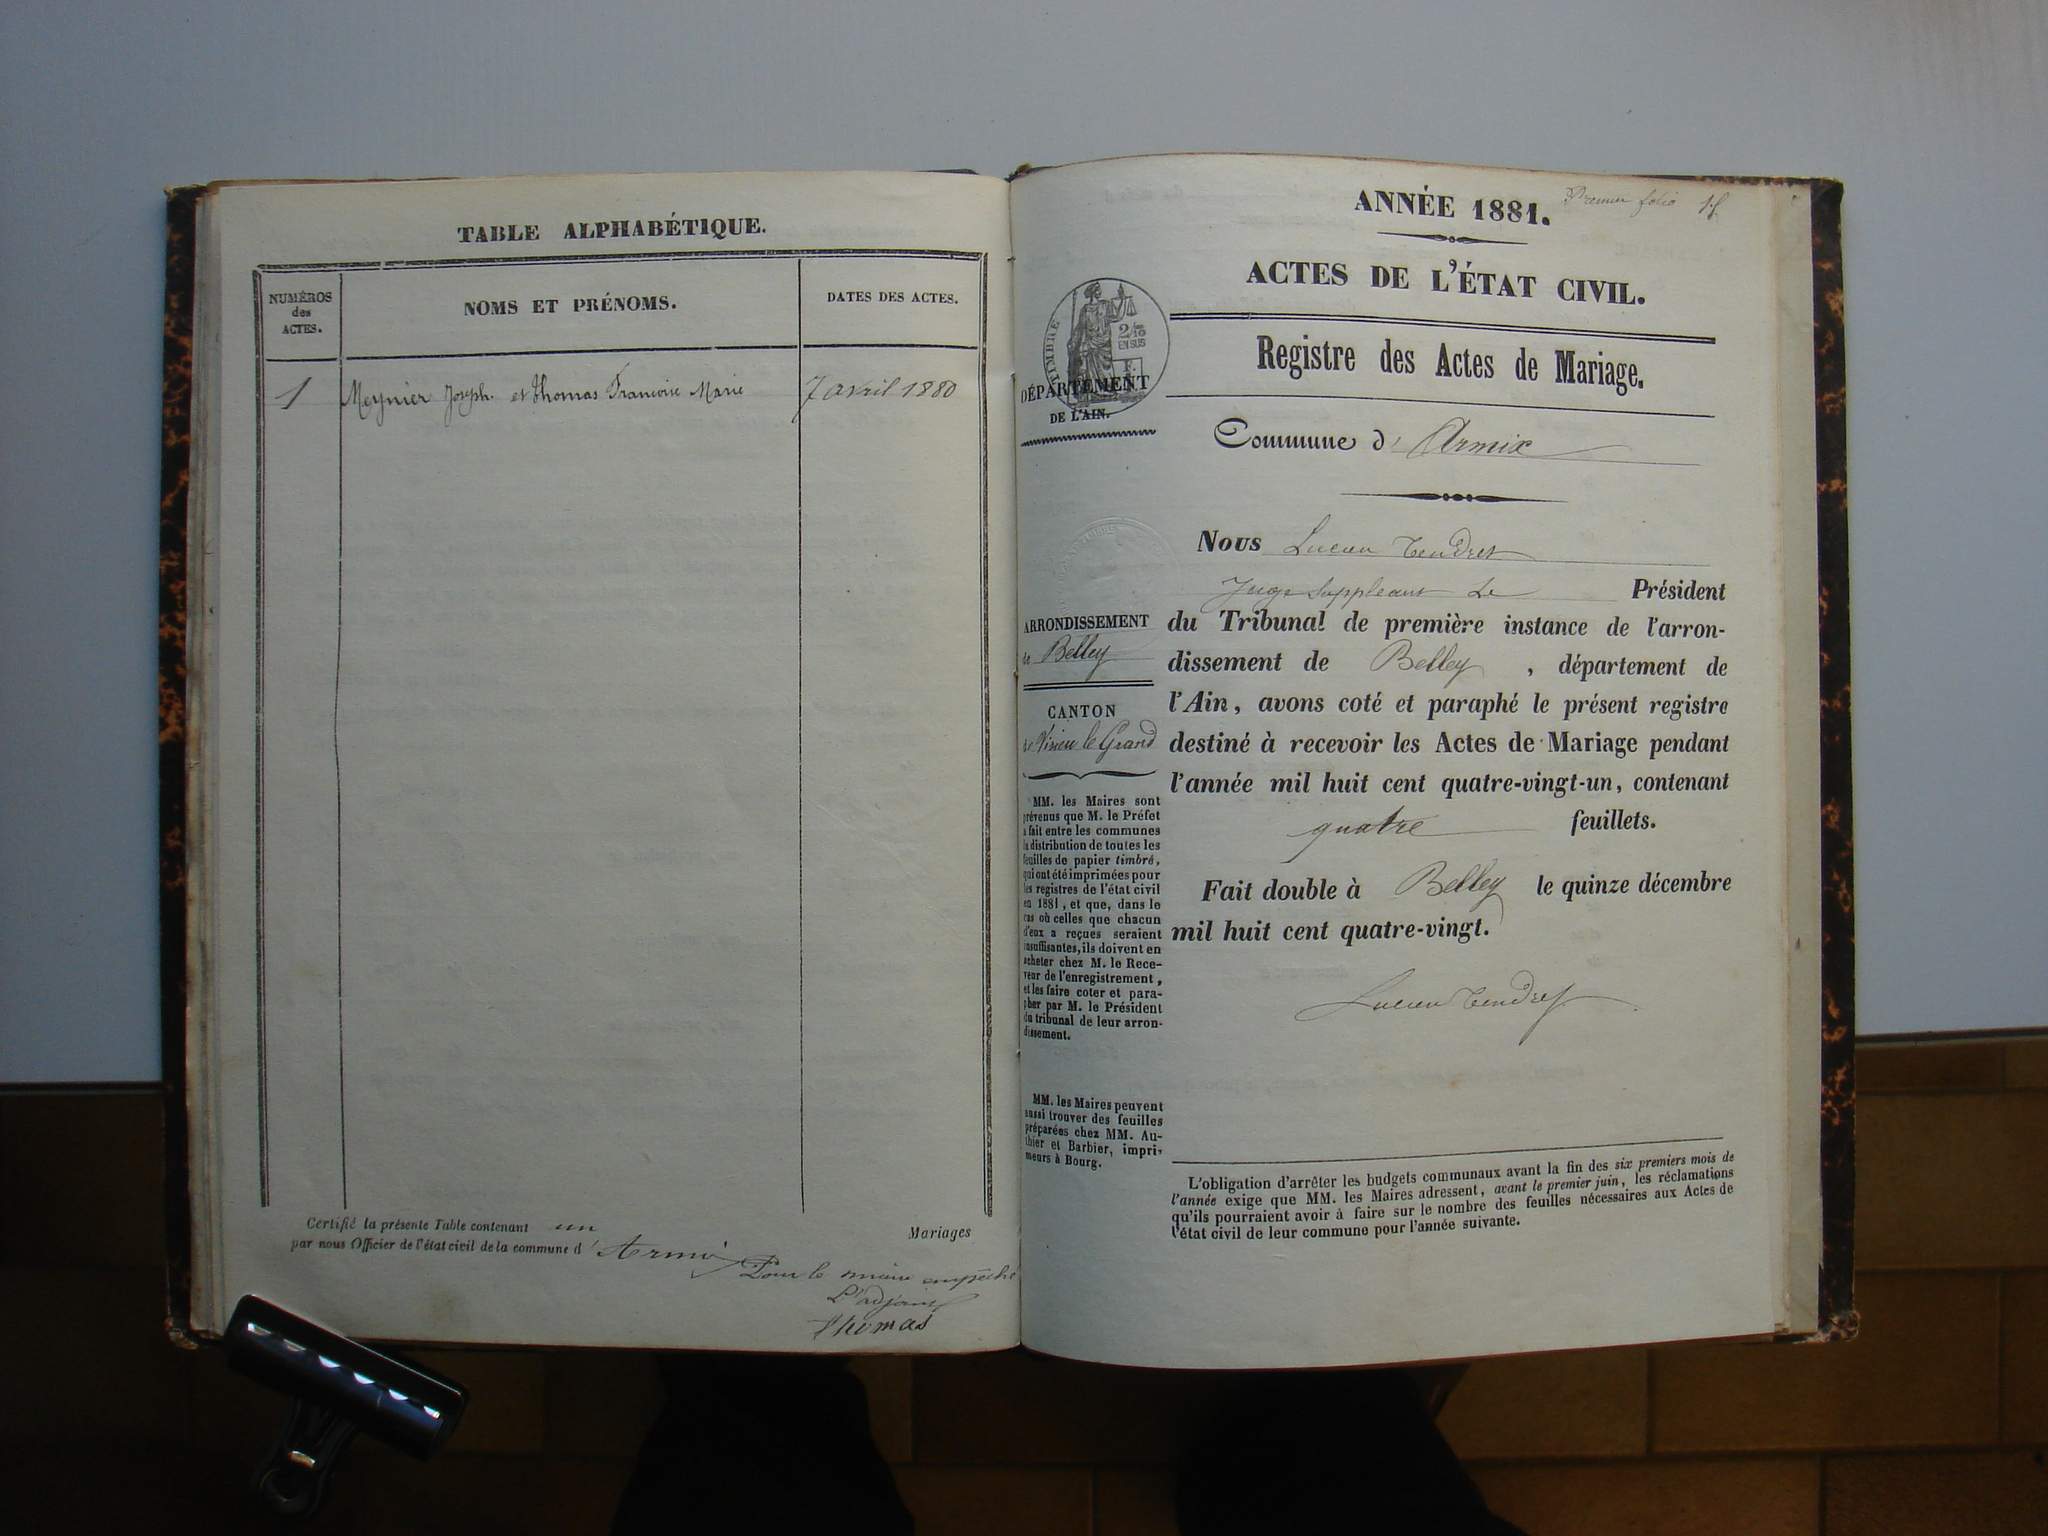 TABLE ALPHABÉTIQUE.
NUMÉROS
des
ACTES.
NOMS ET PRÉNOMS.
DATES DES ACTES.
1 Meynier Joseph. et Thomas Francoise Marie 7 avril 1880
Certifié la présente Table contenant un Mariages
par nous Officier de l'état civil de la commune d'Armix
Pour le maire empêché
L'adjoint
Thomas
Premier folio
ANNÉE 1881.
ACTES DE L'ÉTAT CIVIL.
TIMBRE
2/10
EN SUS
F.
DÉPARTEMENT
DE L'AIN.
Registre des Actes de Mariage.
Commune d'Armix
ARRONDISSEMENT
de Belley
CANTON
de Virieu le Grand
MM. les Maires sont
prévenus que M. le Préfet
a fait entre les communes
la distribution de toutes les
feuilles de papier timbré,
qui ont été imprimées pour
les registres de l'état civil
en 1881, et que, dans le
cas où celles que chacun
d'eux a reçues seraient
insuffisantes, ils doivent en
acheter chez M. le Rece-
veur de l'enregistrement,
et les faire coter et para-
pher par M. le Président
du tribunal de leur arron-
dissement.
MM. les Maires peuvent
aussi trouver des feuilles
préparées chez MM. Au-
thier et Barbier, impri-
meurs à Bourg.
Nous Lucien Tendret
Juge Suppléant Le Président
du Tribunal de première instance de l'arron-
dissement de Belley, département de
l'Ain, avons coté et paraphé le présent registre
destiné à recevoir les Actes de Mariage pendant
l'année mil huit cent quatre-vingt-un, contenant
quatre feuillets.
Fait double à Belley le quinze décembre
mil huit cent quatre-vingt.
Lucien Tendret
L'obligation d'arrêter les budgets communaux avant la fin des six premiers mois de
l'année exige que MM. les Maires adressent, avant le premier juin, les réclamations
qu'ils pourraient avoir à faire sur le nombre des feuilles nécessaires aux Actes de
l'état civil de leur commune pour l'année suivante.